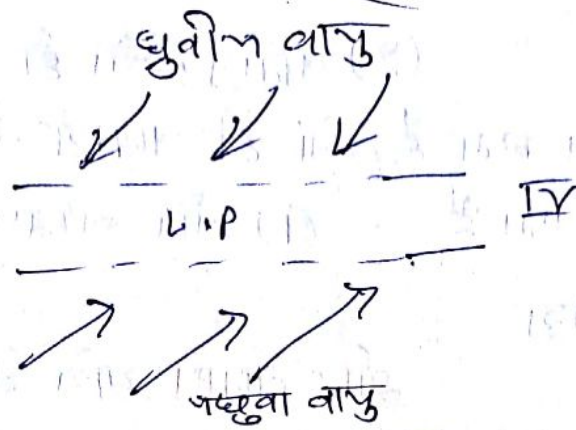 ध्रुवीय वायु
L.P
IV
पछुवा वायु